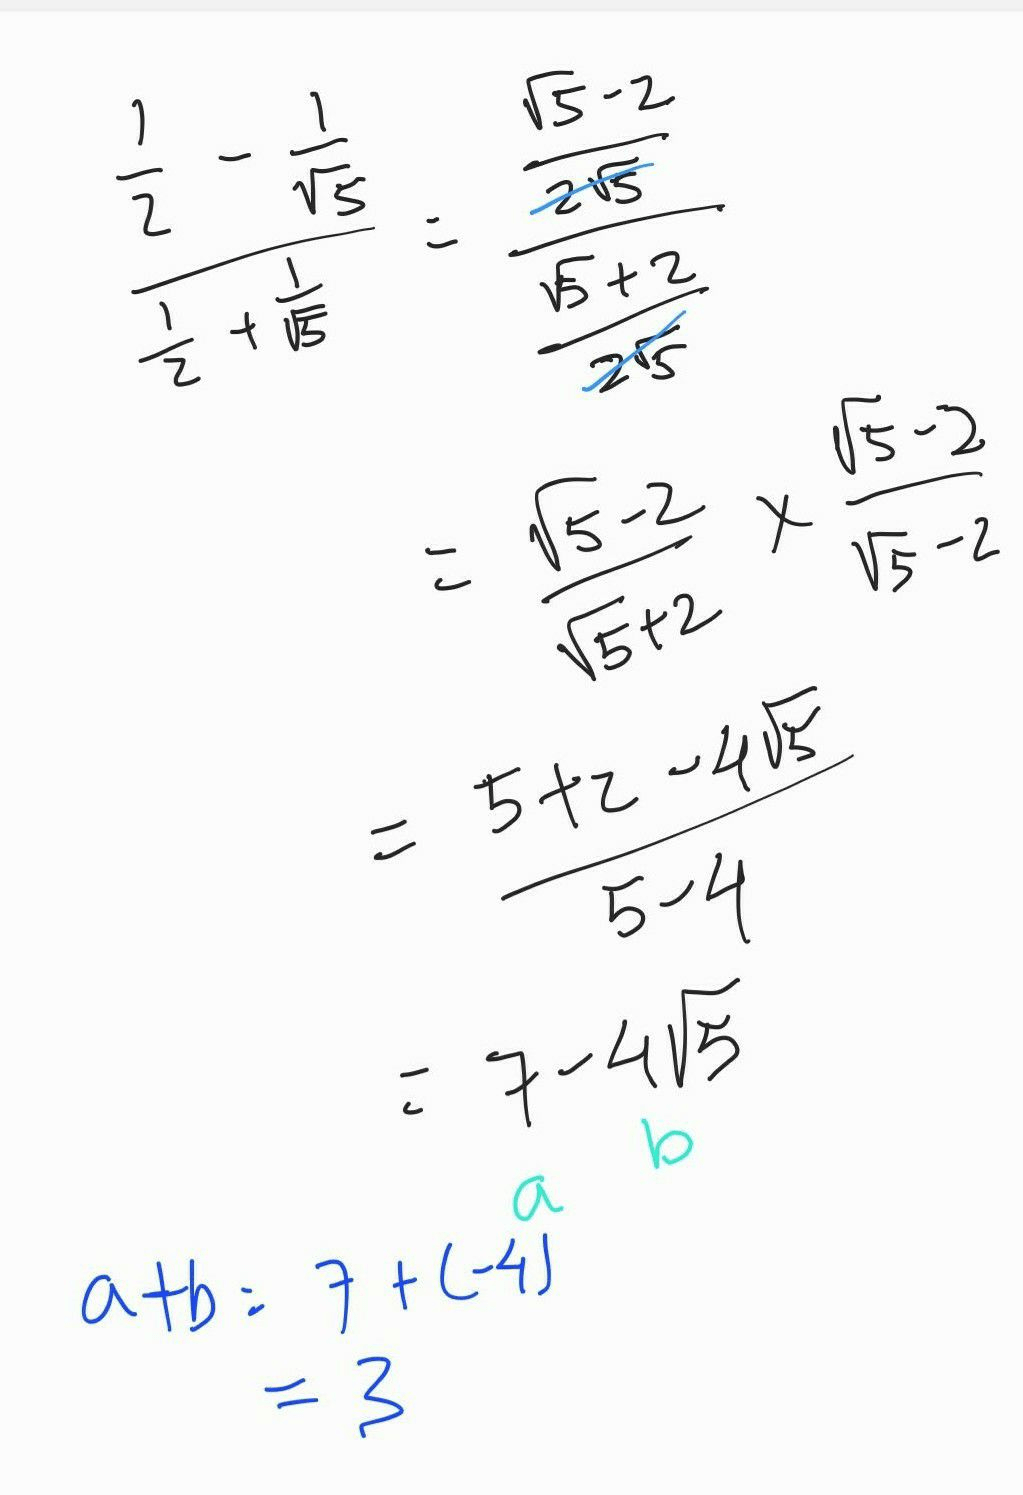 (1/2 - 1/√5) / (1/2 + 1/√5) = ((√5-2)/(2√5)) / ((√5+2)/(2√5))
= (√5-2)/(√5+2) × (√5-2)/(√5-2)
= (5+2-4√5)/(5-4)
= 7-4√5
a b
a+b = 7+(-4)
= 3